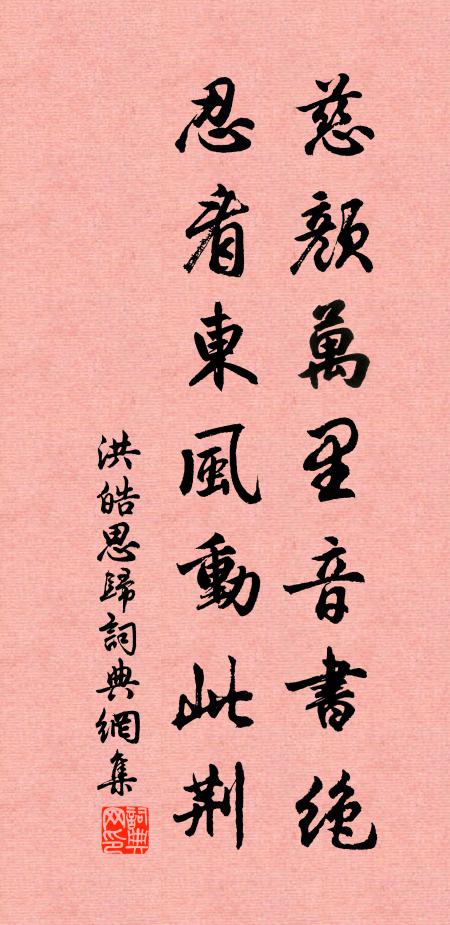 慈顔萬里音書絶
忍看東風動此荆
洪皓思歸詞典網集
詞典網印